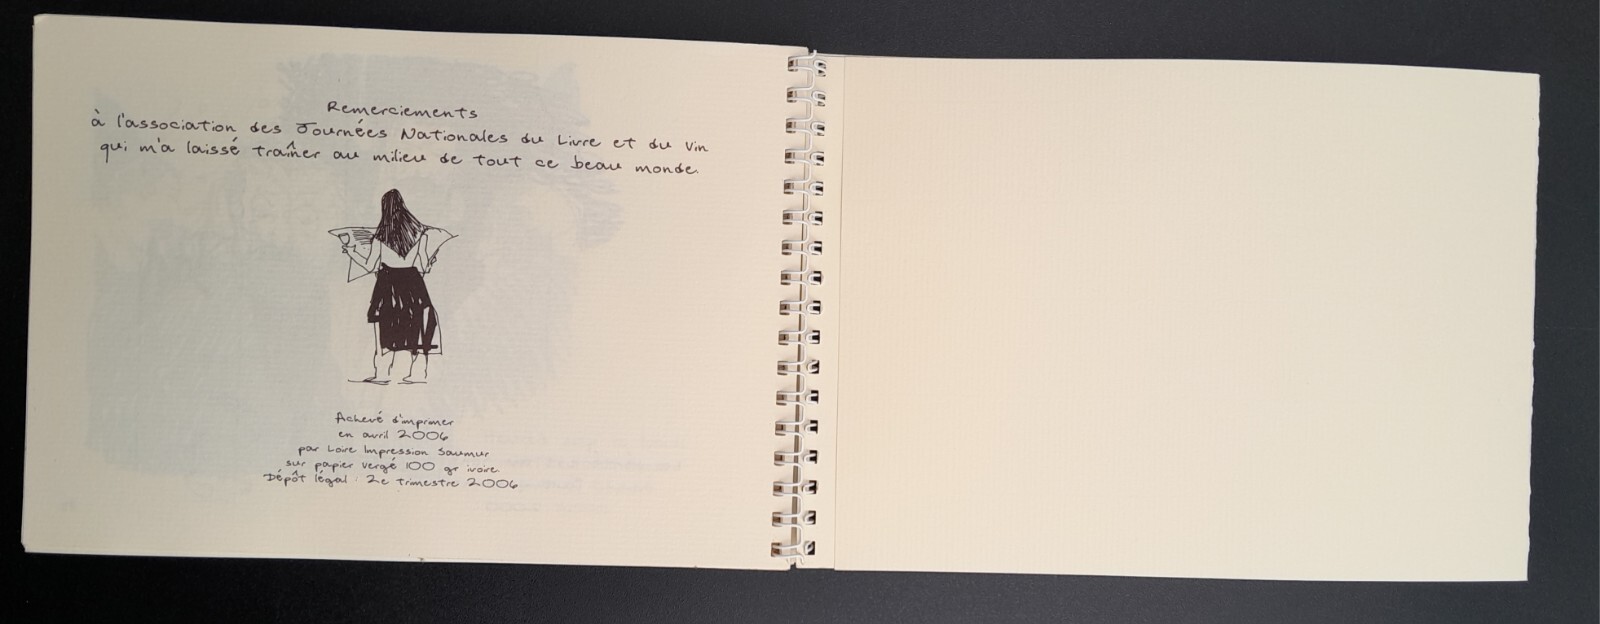 Remerciements
à l'association des Journées Nationales du Livre et du Vin
qui m'a laissé traîner au milieu de tout ce beau monde.
Achevé d'imprimer
en avril 2006
par Loire Impression Saumur
sur papier vergé 100 gr ivoire
Dépôt légal : 2e trimestre 2006